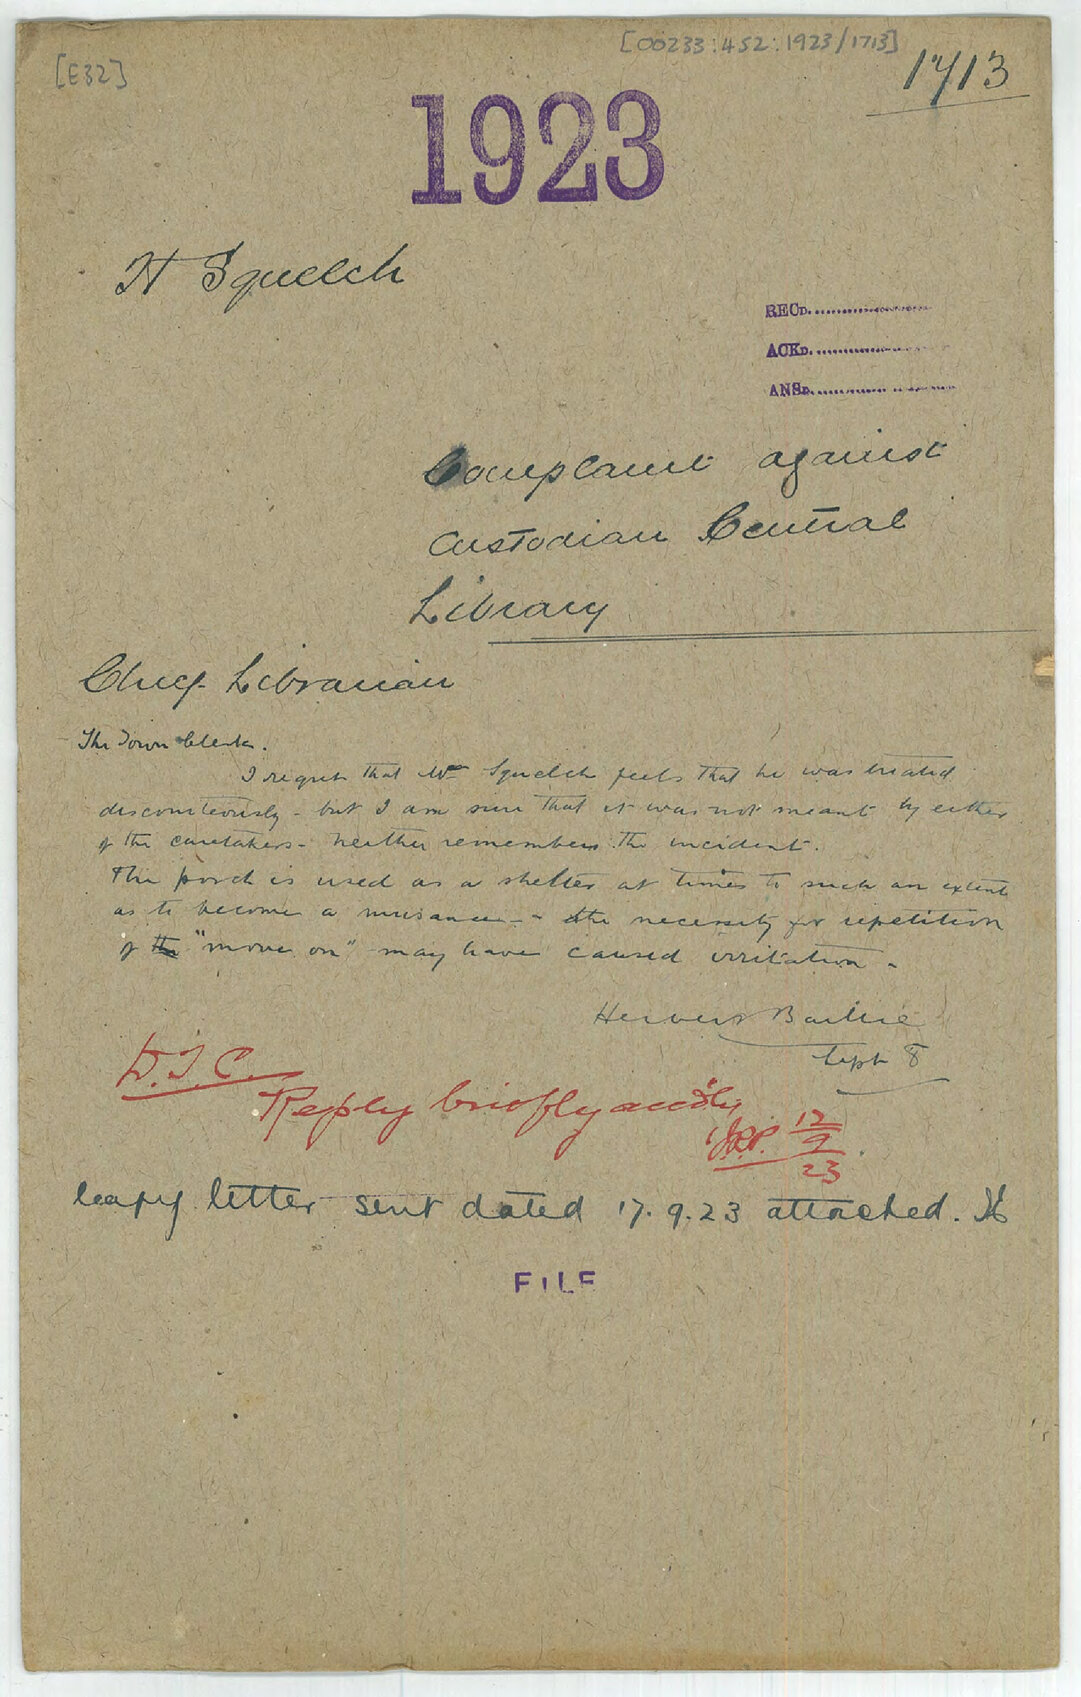 [E32]
[00233:452:1923/1713]
1713
1923
H Squelch
RECD.
ACKD.
ANSD.
Complaint against
Custodian Central
Library
Chief Librarian
The Town Clerk.
I regret that Mr Squelch feels that he was treated
discourteously - but I am sure that it was not meant by either
of the caretakers - neither remembers the incident.
The porch is used as a shelter at times to such an extent
as to become a nuisance - & the necessity for repetition
of the "move on" may have caused irritation -
Herbert Baillie
Sept 8
D.T.C.
Reply briefly
J.R.P. 12/9/23
Copy letter sent dated 17.9.23 attached.
FILE